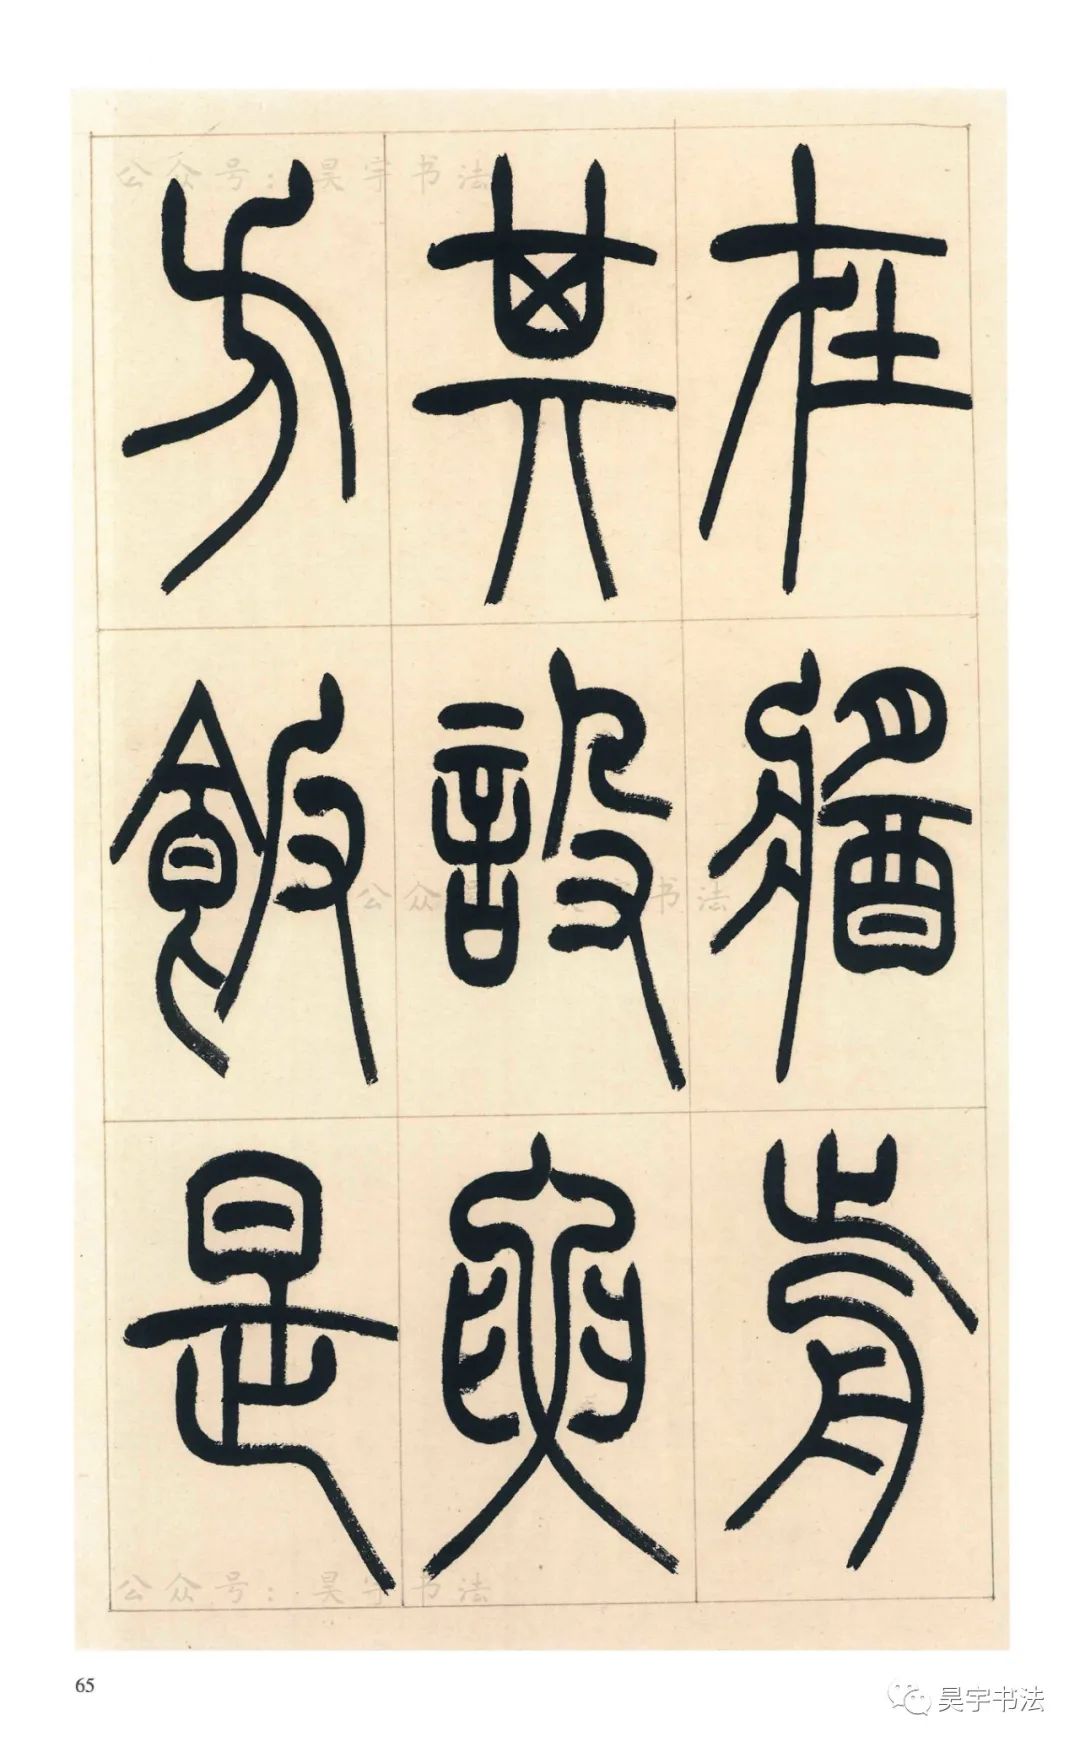 在醬前
其設要
方飯是
公众号：昊宇书法
公众号：昊宇书法
公众号：昊宇书法
65
昊宇书法